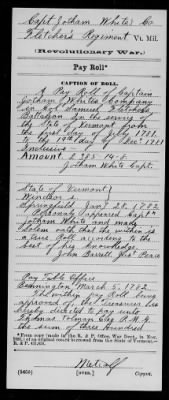 Capt. Jotham White's Co
Fletcher's Regiment Vt. Mil.
(Revolutionary War.)
Pay Roll*
CAPTION OF ROLL.
A Pay Roll of Captain
Jotham White's Company
in Col. Samuel Fletcher's
Battalion In the service of
the State of Vermont from
the first day of July 1781
to the 19th day of Decr 1781
Inclusive
Amount £ 285 14 8
Jotham White Capt.
State of Vermont
Windsor s.
Springfield Jany 28, 1782.
Personally appeared Captn
Jotham White and made
Solemn oath that the within is
a just Roll according to the
best of his knowledge.
John Barrett, Jus. Peace
Pay Table Office
Bennington March 5, 1782.
The within pay Roll being
approved of the treasurer is
hereby directed to pay unto
Thomas Tolman Esq. P.M.G.
the sum of three hundred
*From copy made in the R. & P. Office, War Dept., in
of an original record borrowed from the State of Vermont.
R. & P.
Metcalf
[OVER.]
Copyist.